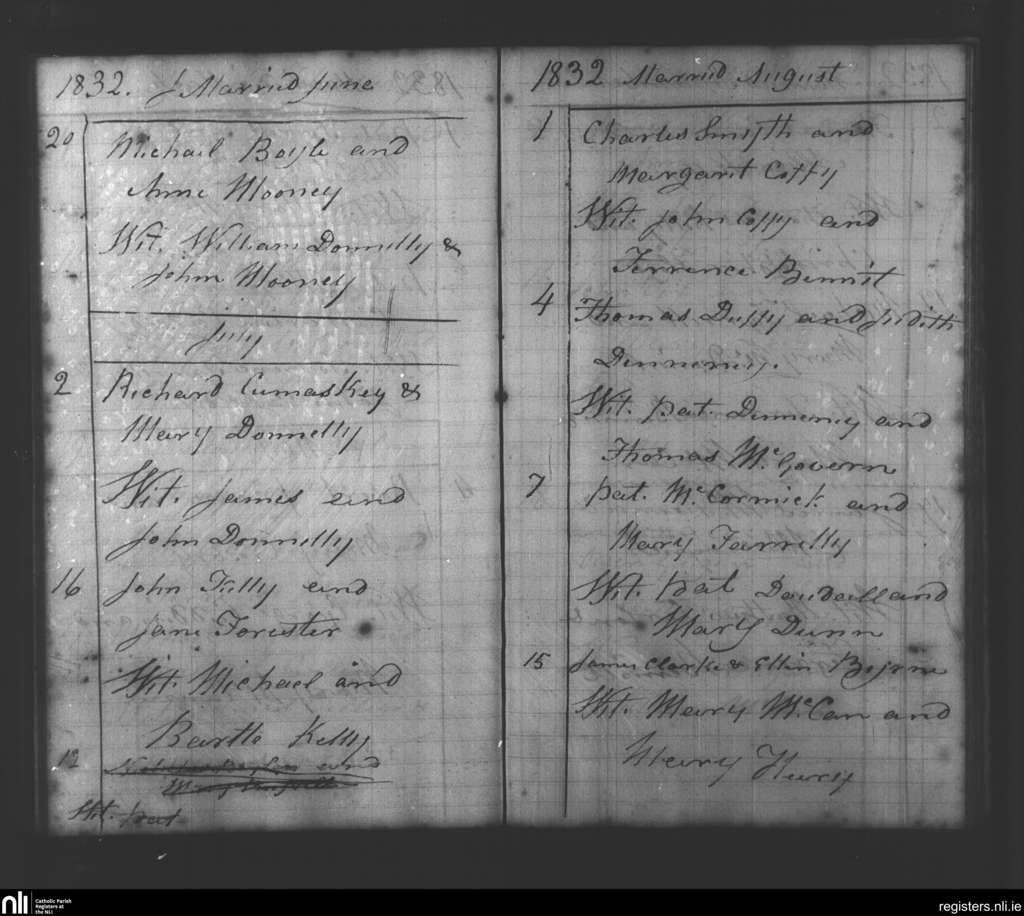 1832. Married June
20 Michael Boyle and
Anne Mooney
Wit. William Donnelly &
John Mooney
July
2 Richard Cumaskey &
Mary Donnelly
Wit. James and
John Donnelly
16 John Tully and
Jane Forester
Wit. Michael and
Bartle Kelly
12
and
Wit. pat
1832 Married August
1 Charles Smyth and
Margaret Coffy
Wit. John Coffy and
Terrence Bennit
4 Thomas Duffy and Judith
Denneny.
Wit. pat. Denneny and
Thomas McGovern
7 pat. McCormick and
Mary Farrelly
Wit. pat Dowdall and
Mary Dunn
15 James Clarke & Ellin Beyrne
Wit. Mary McCan and
Henry
nli Catholic Parish
Registers at
the NLI
registers.nli.ie